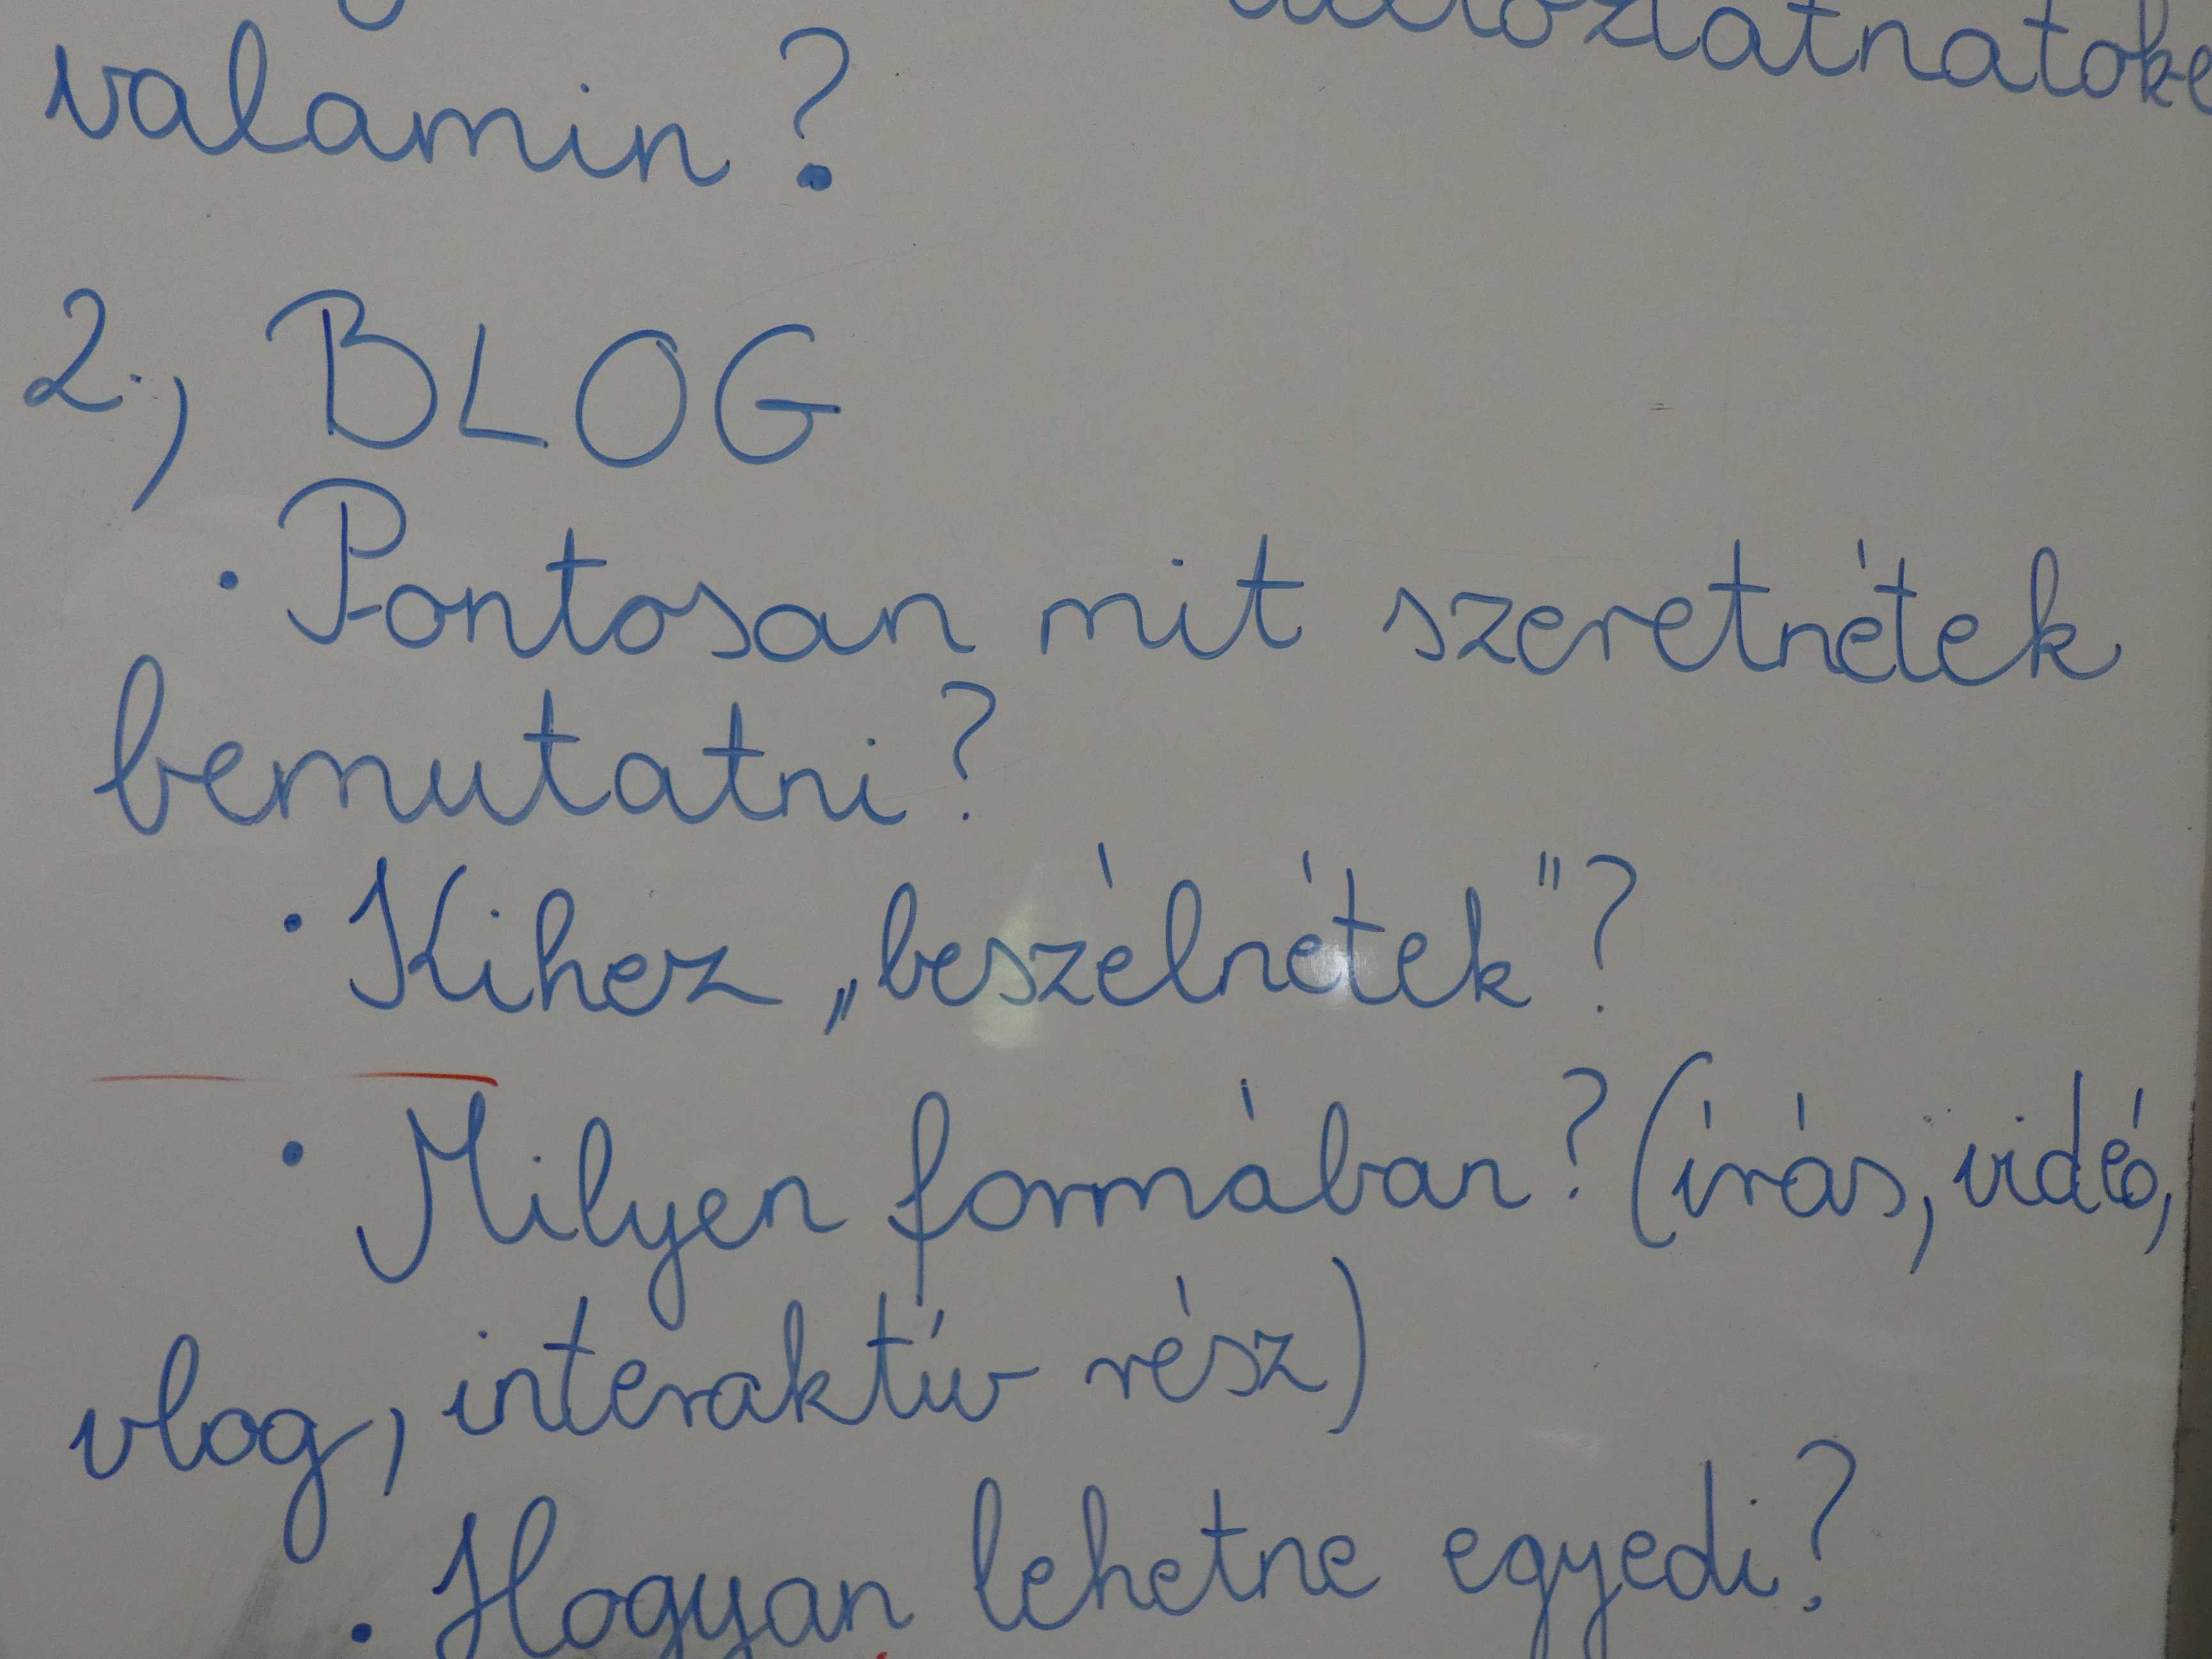 valamin?
2., BLOG
• Pontosan mit szeretnétek
bemutatni?
• Kihez „beszélnétek"?
• Milyen formában? (írás, vidéo,
vlog, interaktív rész)
• Hogyan lehetne egyedi?